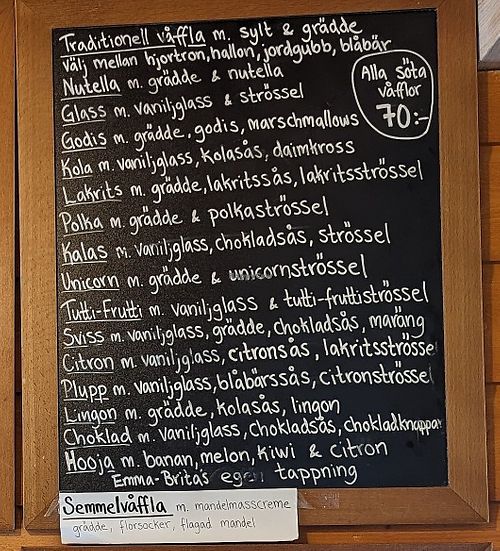 Traditionell våffla m. sylt & grädde
Välj mellan hjortron, hallon, jordgubb, blåbär
Nutella m. grädde & nutella
Alla söta
våfflor
70:-
Glass m. vaniljglass & strössel
Godis m. grädde, godis, marschmallows
Kola m. vaniljglass, kolasås, daimkross
Lakrits m. grädde, lakritssås, lakritsströssel
Polka m. grädde & polkaströssel
Kalas m. vaniljglass, chokladsås, strössel
Unicorn m. grädde & unicornströssel
Tutti-Frutti m. vaniljglass & tutti-fruttiströssel
Sviss m. vaniljglass, grädde, chokladsås, maräng
Citron m. vaniljglass, citronsås, lakritsströssel
Plupp m. vaniljglass, blåbärssås, citronströssel
Lingon m. grädde, kolasås, lingon
Choklad m. vaniljglass, chokladsås, chokladknappar
Hooja m. banan, melon, kiwi & citron
Emma-Britas egen tappning
Semmelvåffla m. mandelmasscreme
grädde, florsocker, flagad mandel